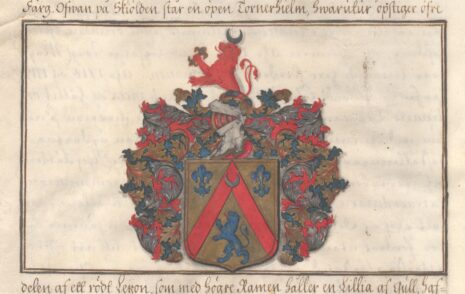 färg. Ofwan på Skiölden står en öpen Tornerhielm, hwarutur opstiger öfre
delen af ett rödt Leyon, som med högre Ramen håller en Lillia af Gull, haf-